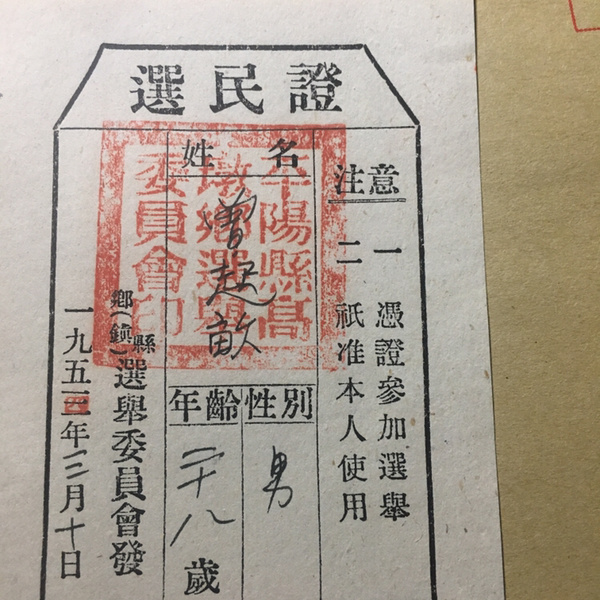 選民證
注意
一 憑證參加選舉
二 祇准本人使用
姓名
曾起畝
性別
男
年齡
二十八歲
縣
鄉(鎮)選舉委員會發
一九五三年三月十日
平陽縣高
墩鄉選舉
委員會印